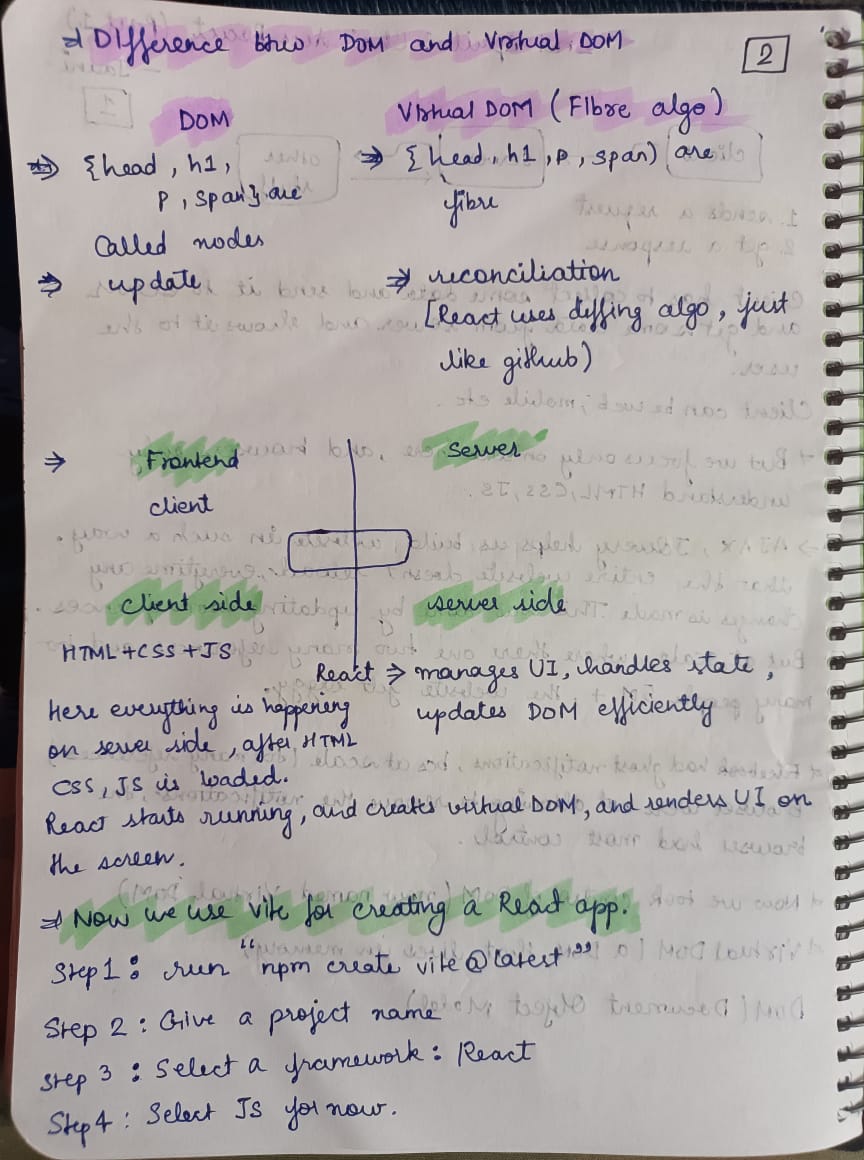 ⇒ Difference btw. DOM and Virtual DOM
2
DOM
⇒ {head, h1,
P, span} are
Called nodes
⇒ update
Virtual DOM (Fibre algo)
⇒ {head, h1, p, span) are
fibre
⇒ reconciliation
[React uses diffing algo, just
like github)
⇒ Frontend
client
server
client side
server side
HTML+CSS+JS
React ⇒ manages UI, handles state,
updates DOM efficiently
Here everything is happening
on server side, after HTML
CSS, JS is loaded.
React starts running, and creates virtual DOM, and renders UI on
the screen.
⇒ Now we use vite for creating a React app.
Step 1: run "npm create vite@latest"
Step 2: Give a project name
Step 3: Select a framework: React
Step 4: Select JS for now.